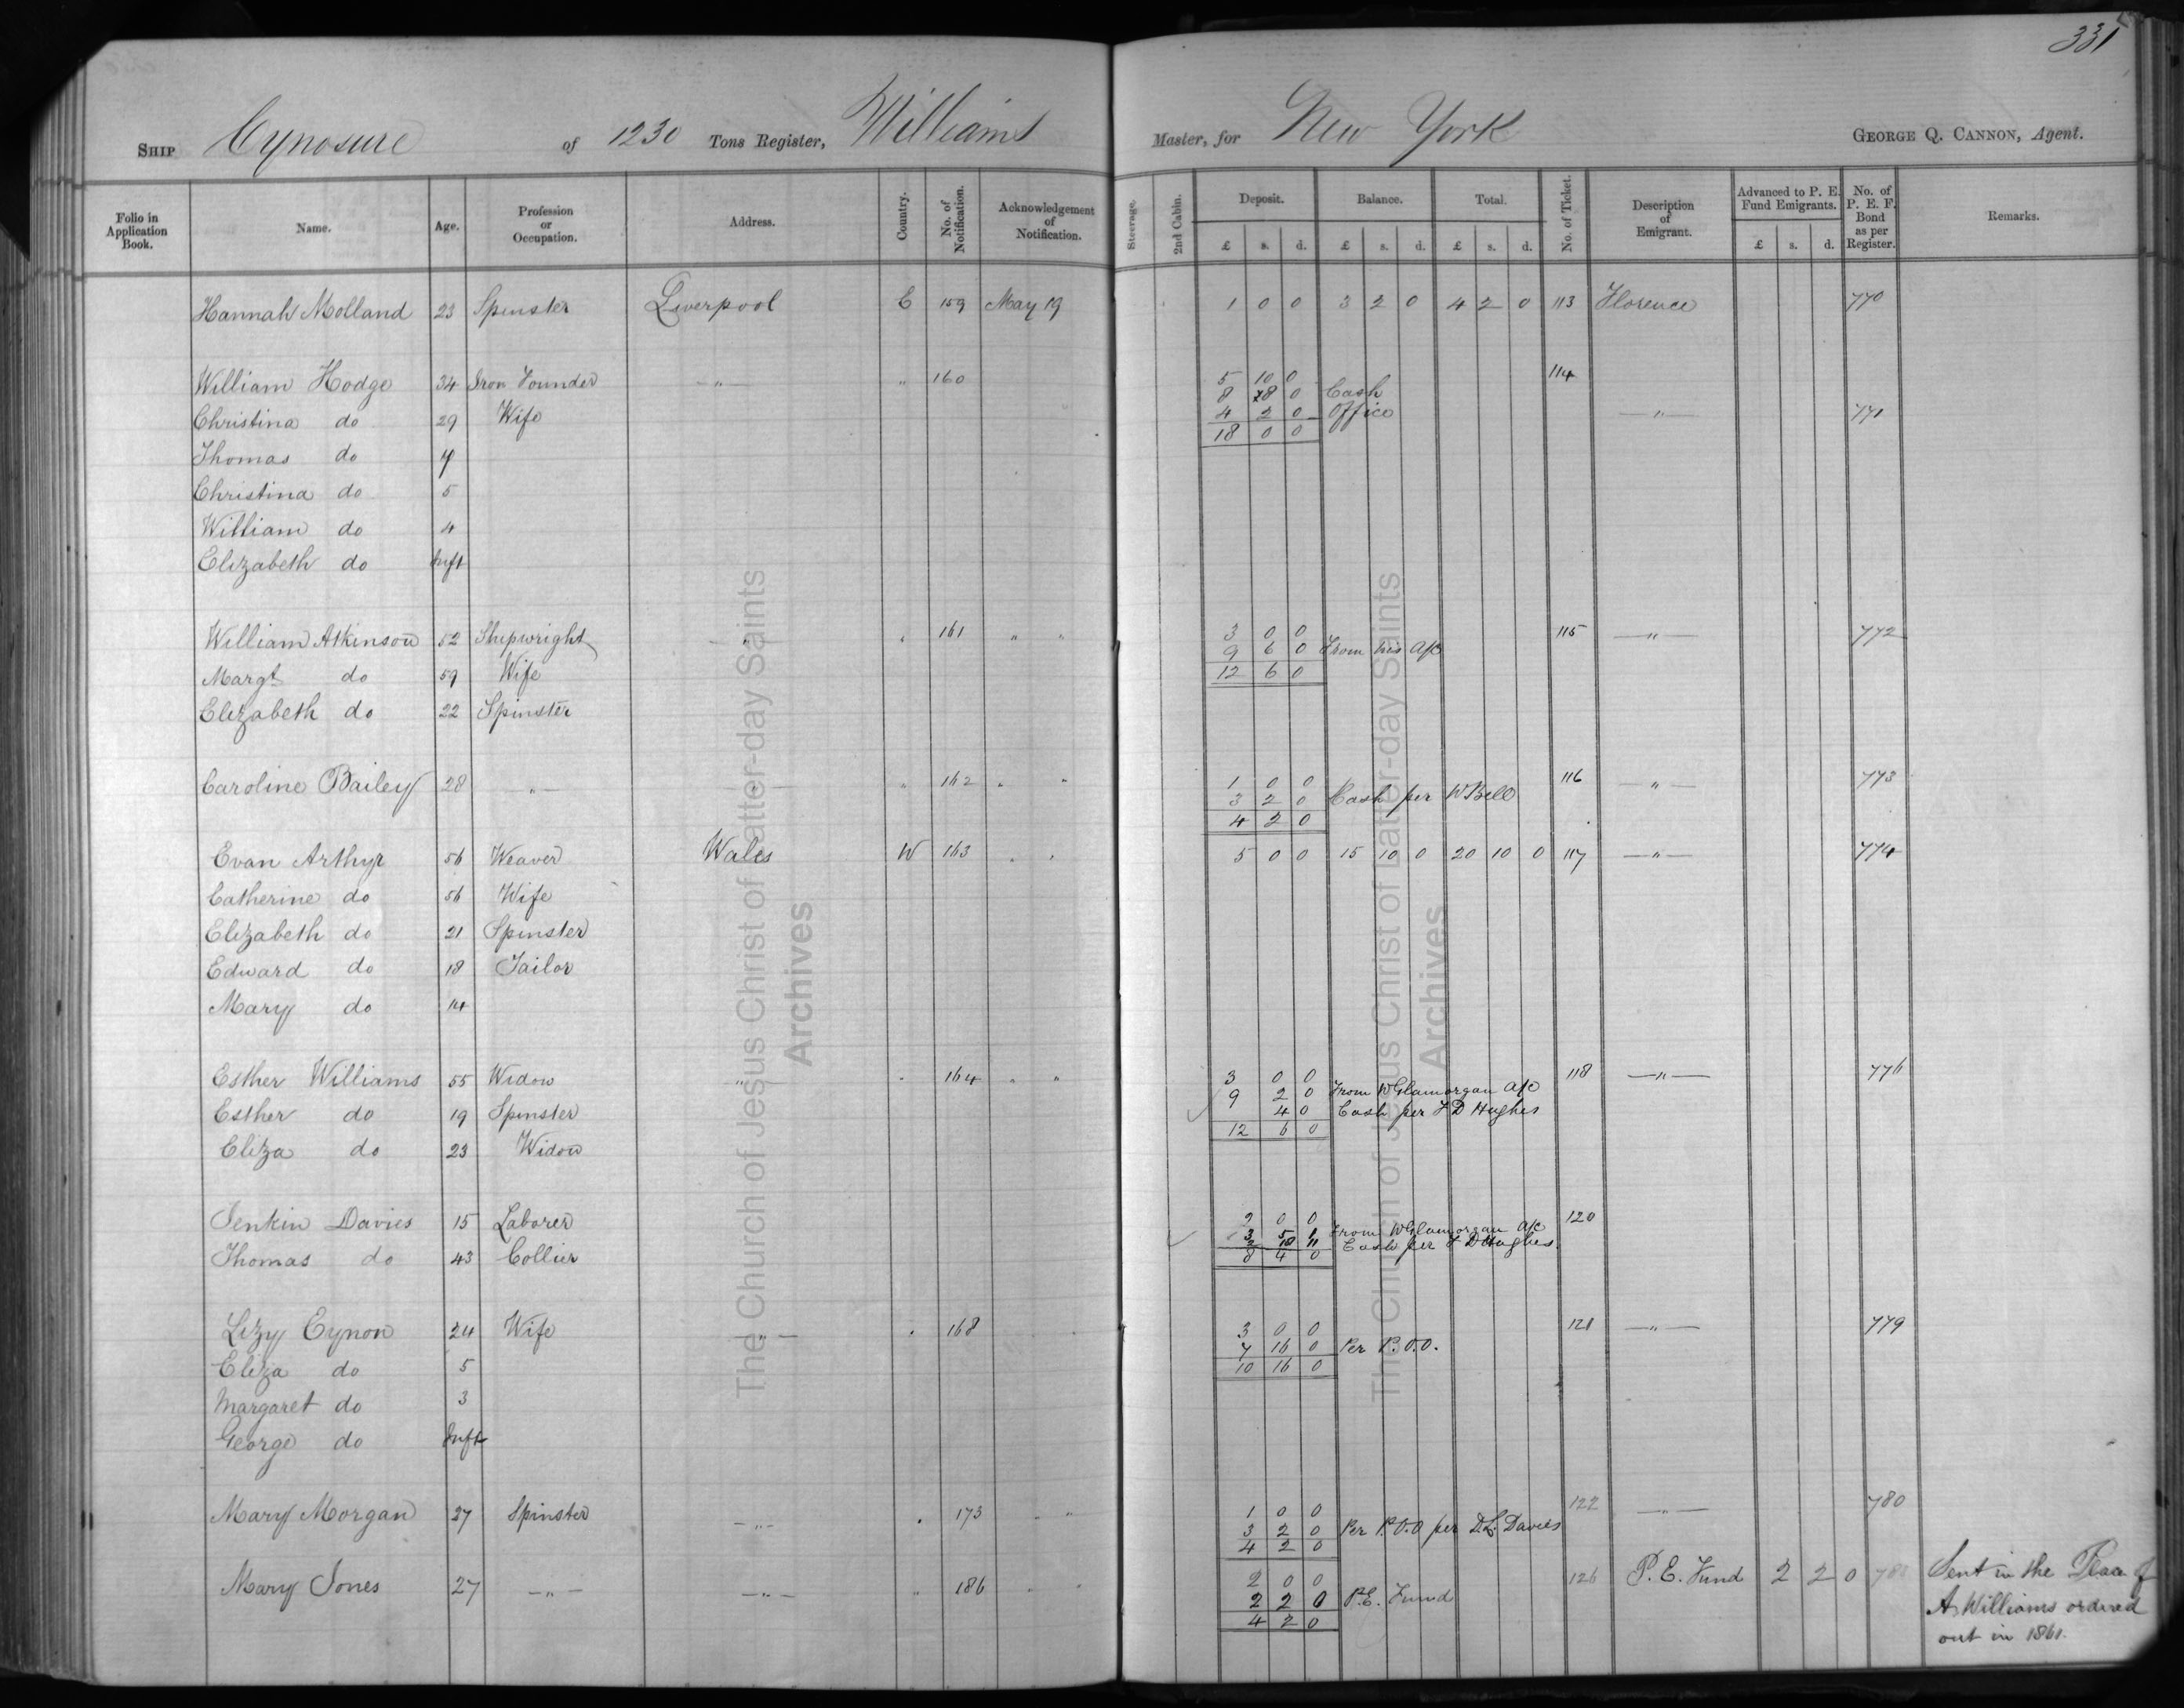 331
SHIP Cynosure of 1230 Tons Register, Williams Master, for New York GEORGE Q. CANNON, Agent.
Folio in Application Book. Name. Age. Profession or Occupation. Address. Country. No. of Notification. Acknowledgement of Notification. Steerage. 2nd Cabin. Deposit. £ s. d. Balance. £ s. d. Total. £ s. d. No. of Ticket. Description of Emigrant. Advanced to P. E. Fund Emigrants. £ s. d. No. of P. E. F. Bond as per Register. Remarks.
Hannah Molland 23 Spinster Liverpool E 159 May 19 1 0 0 3 2 0 4 2 0 113 Florence 770
William Hodge 34 Iron Founder —„— „ 160 5 10 0 114
8 8 0 Cash
Christina do 29 Wife 4 2 0 Office —„— 771
18 0 0
Thomas do 7
Christina do 5
William do 4
Elizabeth do Inft
William Atkinson 52 Shipwright —„— „ 161 „ „ 3 0 0 115 —„— 772
9 6 0 From his a/c
Margt do 59 Wife 12 6 0
Elizabeth do 22 Spinster
Caroline Bailey 28 —„— —„— „ 162 „ „ 1 0 0 116 —„— 773
3 2 0 Cash per W Bell
4 2 0
Evan Arthur 56 Weaver Wales W 163 „ „ 5 0 0 15 10 0 20 10 0 117 —„— 774
Catherine do 56 Wife
Elizabeth do 21 Spinster
Edward do 18 Tailor
Mary do 14
Esther Williams 55 Widow —„— „ 164 „ „ 3 0 0 118 —„— 776
9 2 0 From W Glamorgan a/c
Esther do 19 Spinster 4 0 Cash per F D Hughes
12 6 0
Eliza do 23 Widow
Jenkin Davies 15 Laborer 2 0 0 120
From W Glamorgan a/c
Cash per F D Hughes
Thomas do 43 Collier 8 4 0
Lizy Eynon 24 Wife —„— „ 168 3 0 0 121 —„— 779
7 16 0 Per P.O.O.
Eliza do 5 10 16 0
Margaret do 3
George do Inft
Mary Morgan 27 Spinster —„— „ 173 „ „ 1 0 0 122 —„— 780
3 2 0 Per P.O.O per D.L. Davies
4 2 0
Mary Jones 27 —„— —„— „ 186 „ „ 2 0 0 126 P. E. Fund 2 2 0 Sent in the Place of
2 2 0 P.E. Fund A Williams ordered
4 2 0 out in 1861.
The Church of Jesus Christ of Latter-day Saints
Archives
The Church of Jesus Christ of Latter-day Saints
Archives